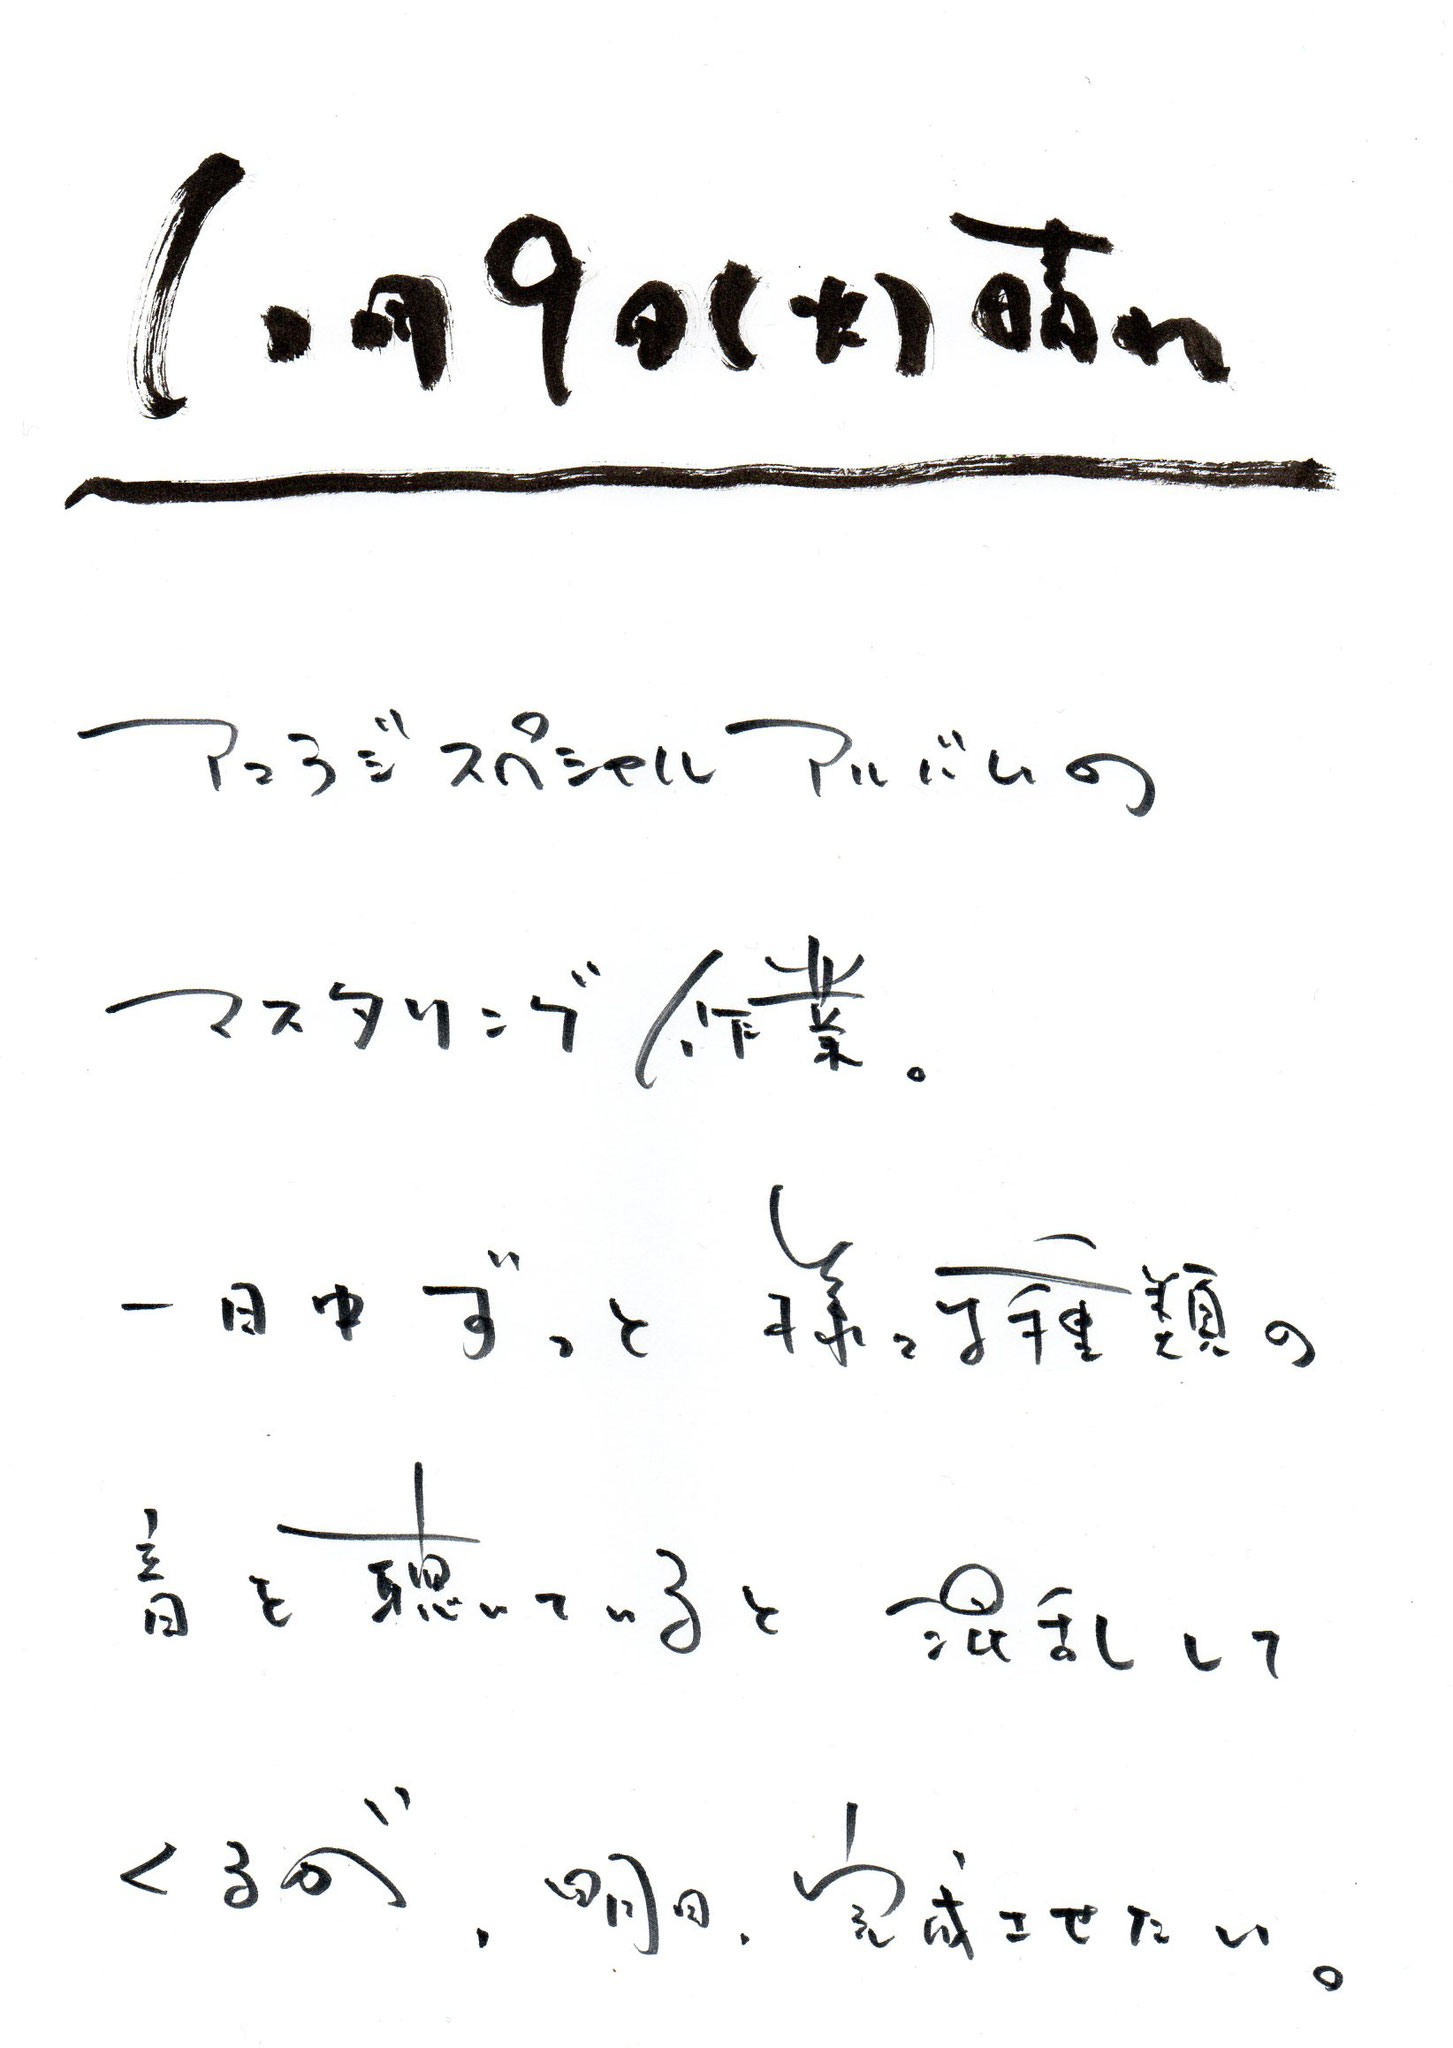 10月9日(火)晴れ
アコラジスペシャルアルバムの
マスタリング作業。
一日中ずっと様々な種類の
音を聴いていると混乱して
くるが、明日、完成させたい。